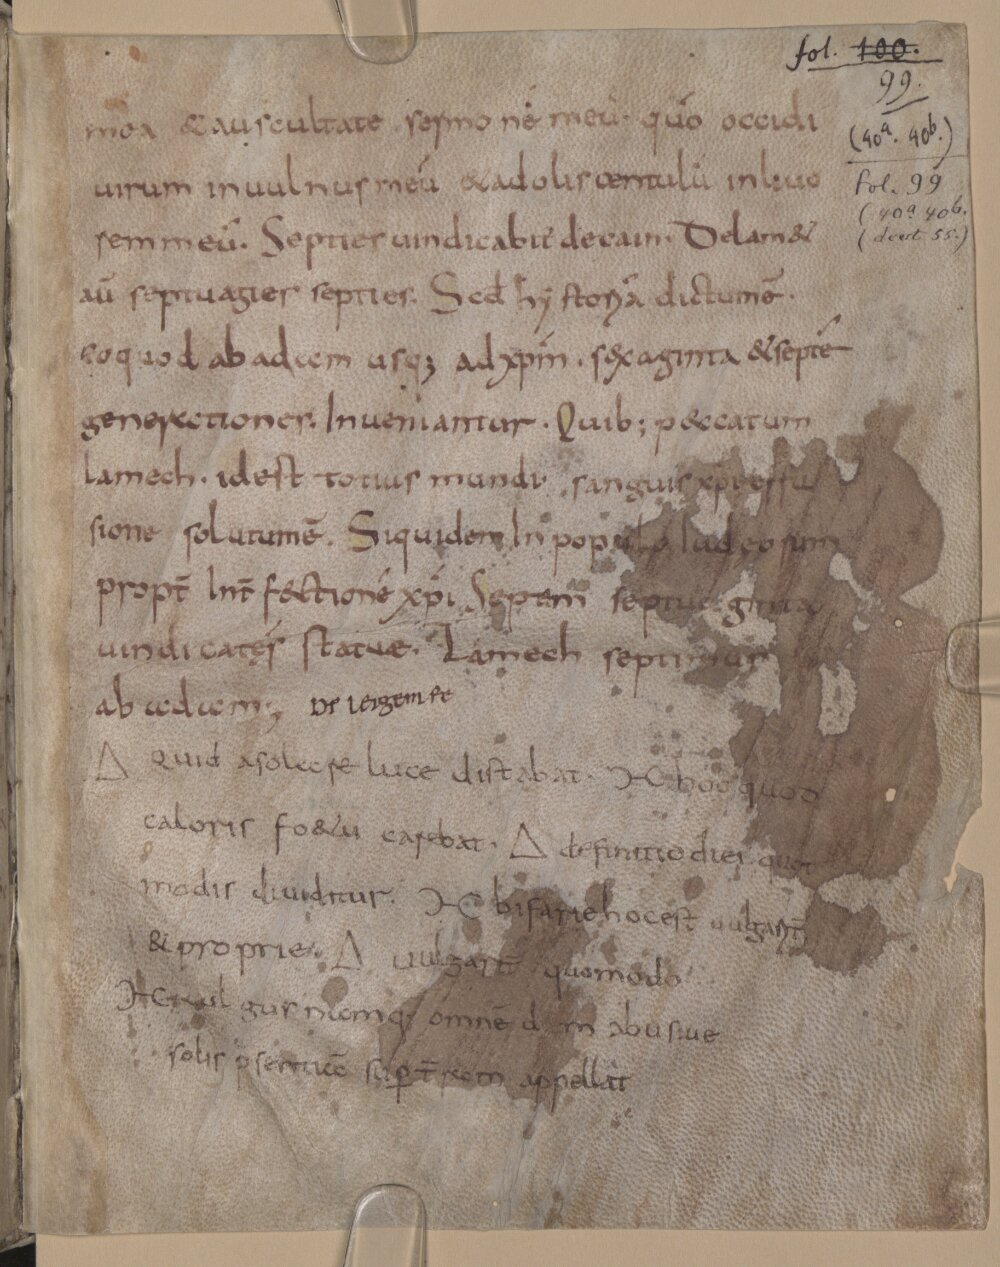 fol. 100.
99.
(40a. 40b.)
fol. 99
(40a 40b.
mea & auscultate sermonē meū. quō occidi
uirum in uulnus meū & adoliscentulū in liuo
rem meū. Septies uindicabit͛ de cain. De lam&
aū septuagies septies. Sed hystoria dictum ē.
eo quod ab adam usq; ad xp̄m. sexaginta & septē
generationes. Inueniantur. Quib; peccatum
lamech. id est totius mundi. sanguis xp̄i effu
sione solutum ē. Siquidem In populo Iudeorum
propt̄ Int̄fectionē xp̄i Septem septuaginta
uindicates statuae. Lamech septimus
ab adam;
Δ Quid a solaere luce distabat. hoc quod
caloris fo&u carebat. Δ definitio diei quot
modis diuiditur. bifarie hoc est uulgarit̄
& proprie. Δ uulgarit̄ quomodo
uulgus namq; omnē abusiue
solis p̄sentiā sup̄ t̄ram appellat